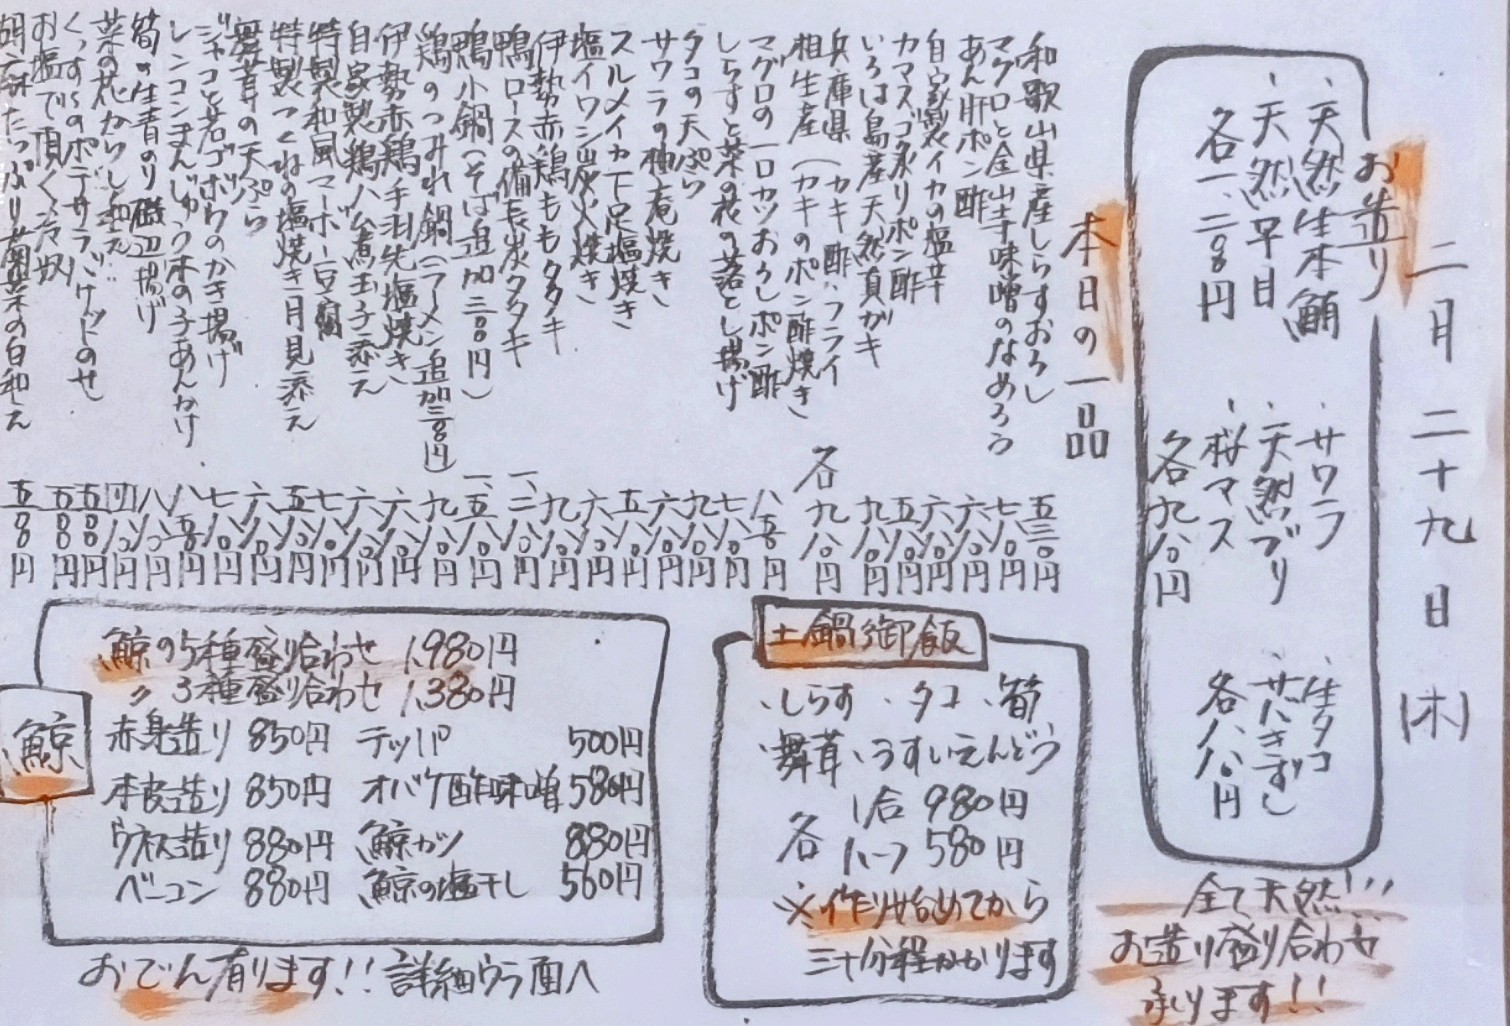 二月二十九日(木)
お造り
、天然生本鮪
、天然平目
各一、二〇〇円
、サワラ
、天然ブリ
、桜マス
各九八〇円
、生タコ
、サバきずし
各八八〇円
全て天然!!!
お造り盛り合わせ
承ります!!
本日の一品
和歌山県産しらすおろし 五三〇円
マグロと金山寺味噌のなめろう 七八〇円
あん肝ポン酢 六八〇円
自家製イカの塩辛 六八〇円
カマスゴ炙りポン酢 五八〇円
いろは島産天然真ガキ 九八〇円
兵庫県(カキ酢、フライ
相生産(カキのポン酢焼き、 各九八〇円
マグロの一口カツおろしポン酢 八五〇円
しらすと菜の花の落とし揚げ 七八〇円
タコの天ぷら 九八〇円
サワラの柚庵焼き 六八〇円
スルメイカ下足塩焼き 五八〇円
塩イワシ炭火焼き 六八〇円
伊勢赤鶏ももタタキ 九八〇円
鴨ロースの備長炭タタキ 一、二八〇円
鴨小鍋(そば追加三〇〇円) 一、五八〇円
鶏のつみれ鍋(ラーメン追加三〇〇円) 九八〇円
伊勢赤鶏手羽先塩焼き 六八〇円
自家製鶏ハム煮玉子添え 六八〇円
特製和風マーボー豆腐 七八〇円
特製つくねの塩焼き月見添え 五八〇円
舞茸の天ぷら 六八〇円
ジャコと若ゴボウのかき揚げ 七八〇円
レンコンまんじゅう木の子あんかけ 八五〇円
筍の生青のり磯辺揚げ 八八〇円
菜の花からし和え 四八〇円
くっすくのポテサラ、ごけッドのせ 五〇〇円
お塩で頂く冷奴 五〇〇円
胡麻たっぷり菊菜の白和え 五〇〇円
土鍋御飯
、しらす 、タコ 、筍
、舞茸 、うすいえんどう
各 1合 980円
ハーフ 580円
※作り始めてから
三十分程かかります
鯨
鯨の5種盛り合わせ 1,980円
〃 3種盛り合わせ 1,380円
赤身造り 850円 テッパ 500円
本皮造り 850円 オバケ酢味噌 580円
ウネス造り 880円 鯨カツ 880円
ベーコン 880円 鯨の塩干し 560円
おでん有ります!!詳細ウラ面へ